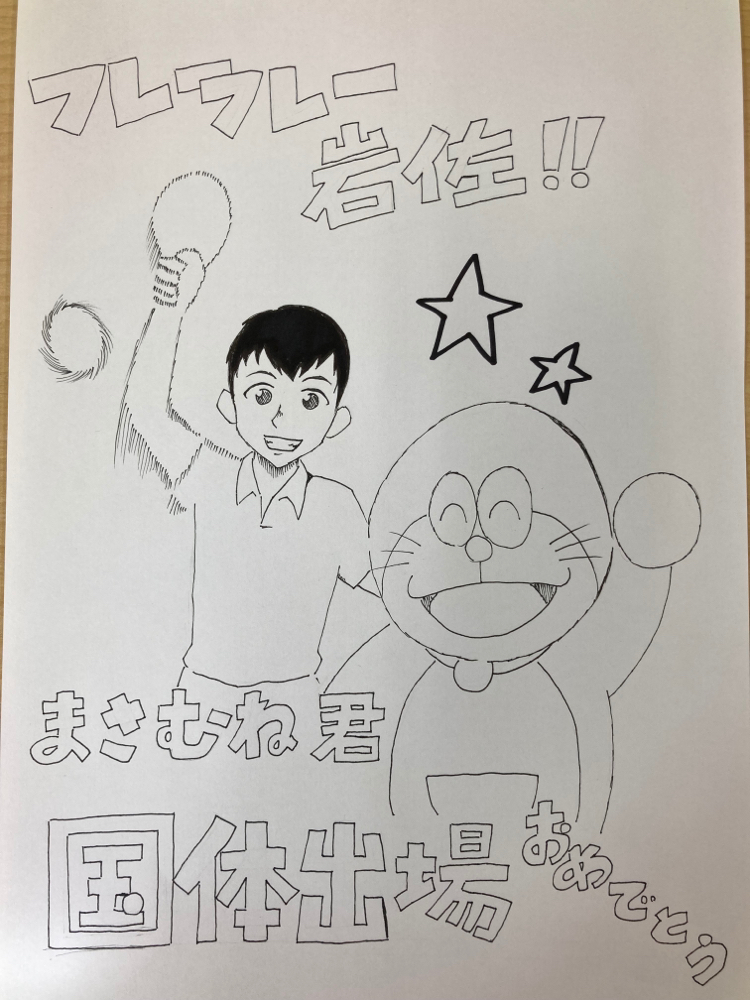 フレウレー
岩佐!!
まさむね君
国体出場おめでとう